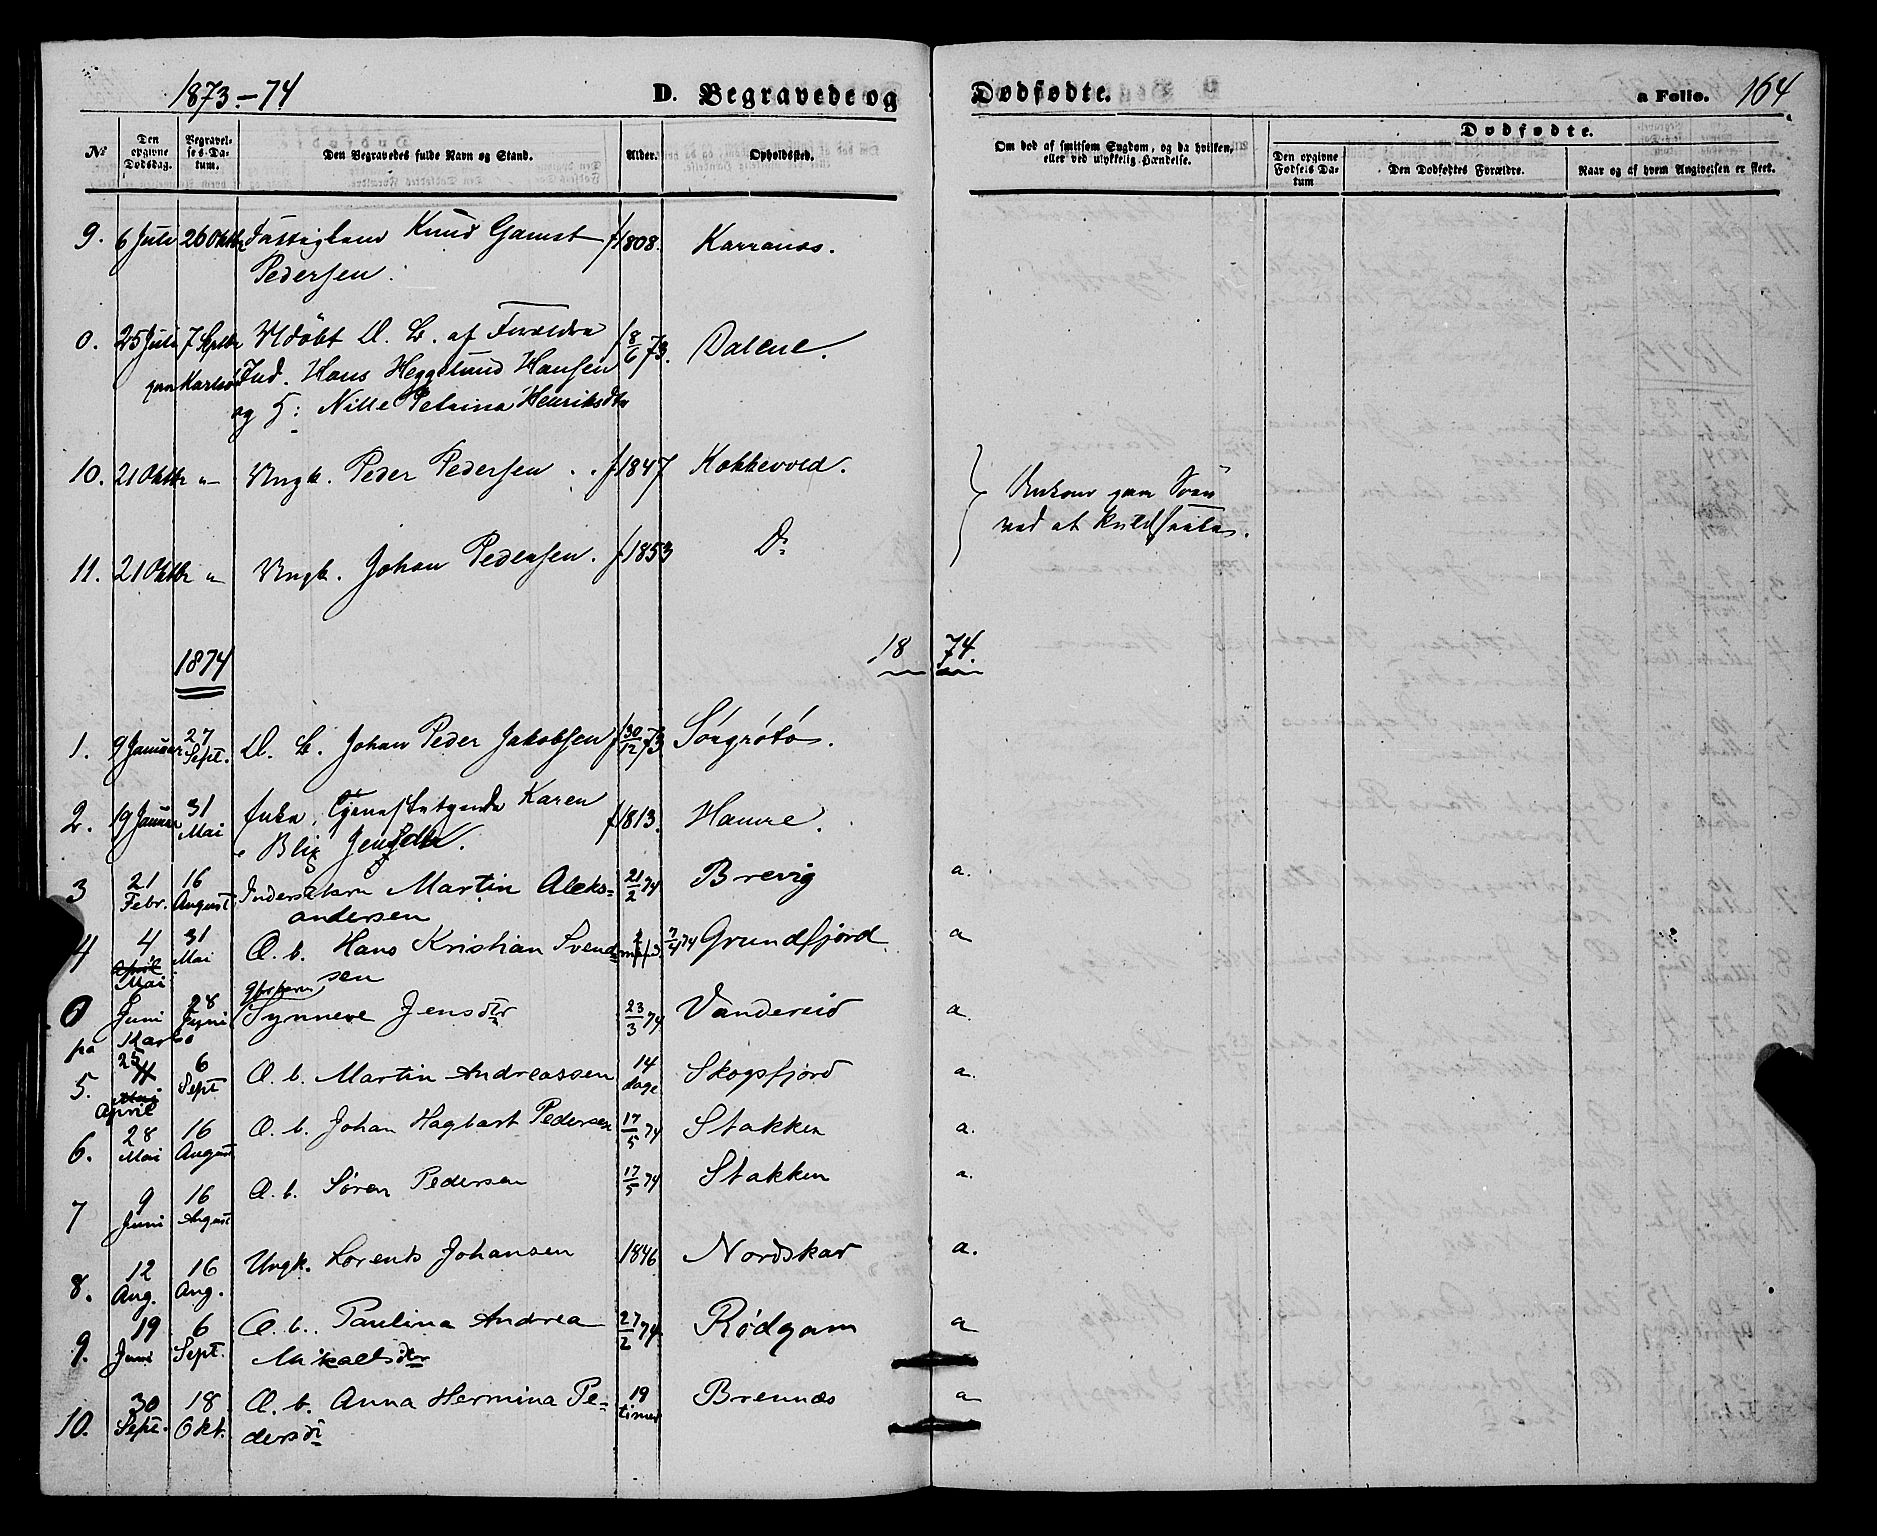 1873-74
D. Begravede og Dødfødte.
a Folio. 164
No
Den opgivne Dødsdag.
Begravelses-Datum.
Den Begravedes fulde Navn og Stand.
Alder.
Opholdssted.
Om død af smitsom Sygdom, og da hvilken, eller ved ulykkelig Hændelse.
Dødfødte.
Den opgivne Fødsels Datum
Den Dødfødtes Forældre.
Naar og af hvem Angivelsen er skeet.
9. 6 Juli 26 Oktbr Knud Gamst f 1808. Karranæs.
Pedersen.
0. 25 Juli 7 Septbr Udöbt U. B. af Forældre f 8/6 73. Dalene.
paa Karlsö Ind. Hans Heggelund Hansen
og H: Nille Petrina Henriksdtr
10. 21 Oktbr " Ungk. Peder Pedersen . f 1847 Kokkevold.
} Omkom paa Söen
ved at kuldseile.
11. 21 Oktbr " Ungk. Johan Pedersen. f 1853 Do
1874
18 74.
1. 9 Januar 27 Sept. U. B. Johan Peder Jakobsen f 30/12 73 Sörgrötö.
2. 19 Januar 31 Mai Karen f 1813. Hamre.
Blix Jensdtr.
3 21 Febr. 16 August Inderstbarn Martin Aleks- 21/2 74 Brevig a.
andersen
4 4 April Mai 31 Mai O. b. Hans Kristian Svend- 7/4 74 Grundfjord a
sen
0 Juni 28 Juni Synneve Jensdtr 23/3 74 Vandereid a.
på Karlsö
5. 25 April 6 Sept O. b. Martin Andreassen 14 dage Skogsfjord a.
6. 28 Mai 16 August O. b. Johan Hagbart Pedersen 17/5 74 Stakken a.
7 9 Juni 16 August O. b. Søren Pedersen 17/5 74 Stakken a.
8. 12 Aug. 16 Aug. Ungk. Lorents Johansen 1846 Nordskar a.
9. 19 Juni 6 Sept. O. b. Paulina Andrea 27/2 74. Rødgam a
Mikaelsdtr
10. 30 Sept. 18 Okt. O. b. Anna Hermina Pe- 19 timer Brennæs a
dersdtr